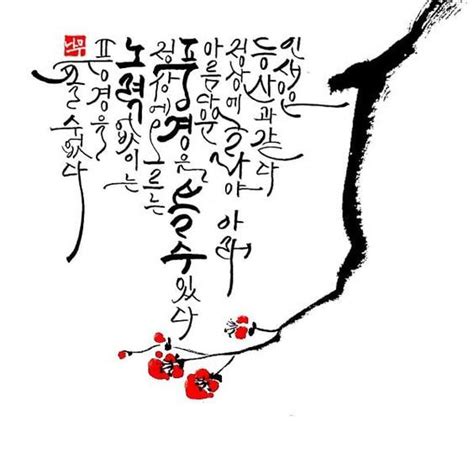 인생은
등산과 같다
정상에 올라야 아래
아름다운
풍경을 볼 수 있다
정상에 오르는
노력 없이는
풍경을
볼 수 없다
나무